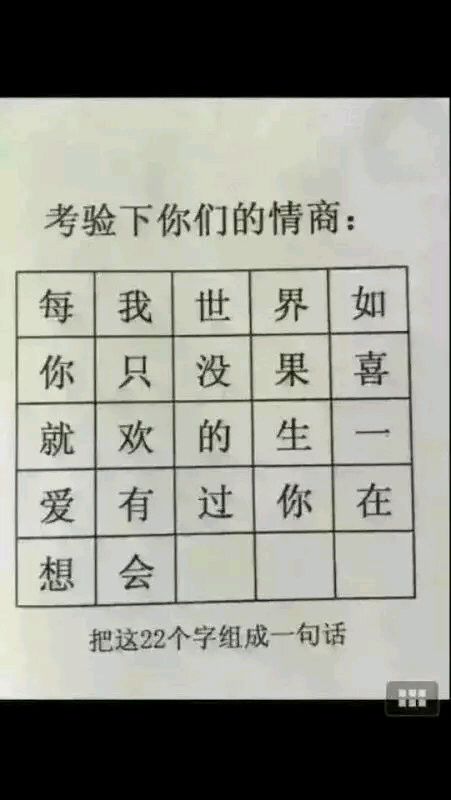 考验下你们的情商：
每 我 世 界 如
你 只 没 果 喜
就 欢 的 生 一
爱 有 过 你 在
想 会
把这22个字组成一句话